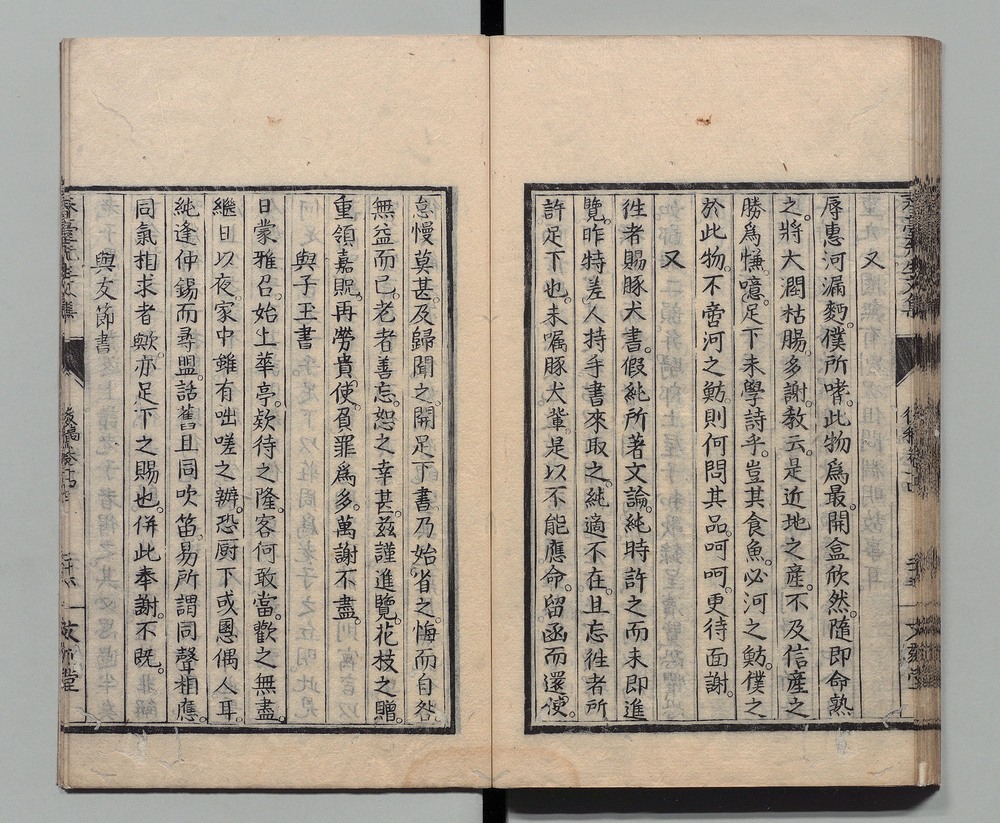 又
辱惠河漏麪。僕所嗜。此物爲最。開盒欣然。隨即命熟
之。將大潤枯腸。多謝。教云。是近地之產。不及信產之
勝爲慊。噫。足下未學詩乎。豈其食魚。必河之魴。僕之
於此物。不啻河之魴。則何問其品。呵呵。更待面謝。
又
徃者賜豚犬書。假純所著文論。純時許之。而未即進
覽。昨特差人持手書來取之。純適不在。且忘徃者所
許足下也。未嘱豚犬輩。是以不能應命。留函而還。使。
怠慢莫甚。及歸聞之。開足下書。乃始省之。悔而自咎。
無益而已。老者善忘。恕之幸甚。茲謹進覽。花枝之贈。
重領嘉貺。再勞貴使。負罪爲多。萬謝不盡。
與子玉書
日蒙雅召。始上華亭。欵待之隆。客何敢當。歡之無盡。
繼日以夜。家中雖有咄嗟之辨。恐厨下或慁偶人耳。
純逢仲錫而尋盟。話舊且同吹笛。易所謂同聲相應。
同氣相求者歟。亦足下之賜也。併此奉謝。不旣。
與友節書
後稿卷十四